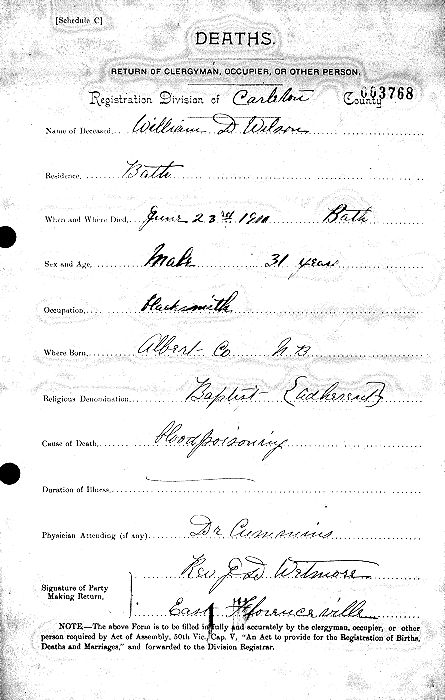 [Schedule C]
DEATHS.
RETURN OF CLERGYMAN, OCCUPIER, OR OTHER PERSON.
Registration Division of Carleton County 003768
Name of Deceased William D Wilson
Residence, Bath
When and Where Died, June 23rd Bath
Sex and Age, Male 31 years
Occupation, blacksmith
Where Born, Albert Co N.B
Religious Denomination Baptist (adherent)
Cause of Death, bloodpoisoning
Duration of Illness,
Physician Attending (if any) Dr Cummins
Signature of Party Making Return, Rev J D Wetmore
East Florenceville
NOTE.—The above Form is to be filled in fully and accurately by the clergyman, occupier, or other
person required by Act of Assembly, 50th Vic., Cap. V, "An Act to provide for the Registration of Births,
Deaths and Marriages," and forwarded to the Division Registrar.